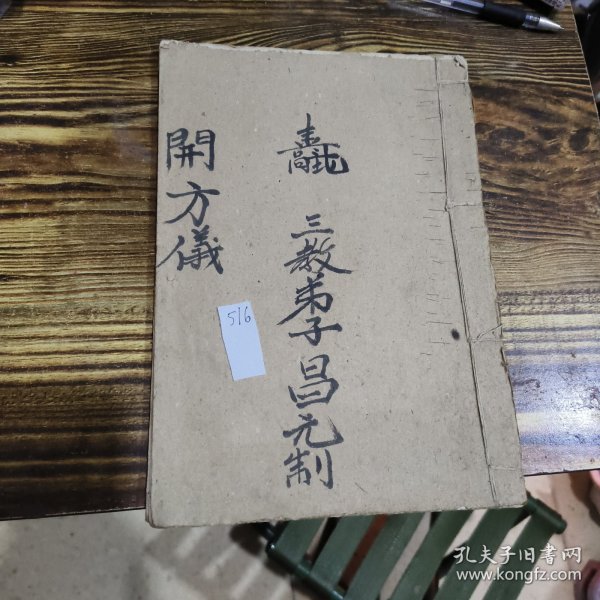 三教弟子昌元制
開方儀
516
孔夫子旧书网
www.kongfz.com